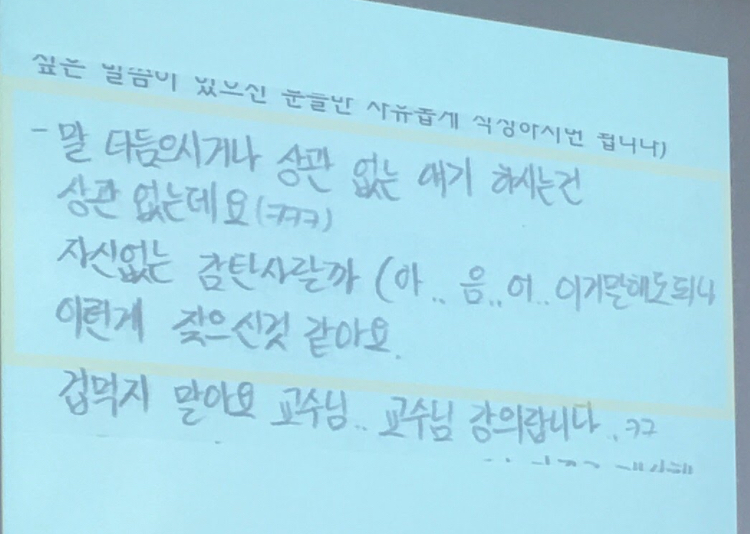 싶은 말씀이 있으신 분들만 자유롭게 작성하시면 됩니다)
- 말 더듬으시거나 상관 없는 얘기 하시는건
상관 없는데요(ㅋㅋㅋ)
자신없는 감탄사랄까 (아.. 음.. 어.. 이거말해도되나
이런게 잦으신것 같아요.
겁먹지 말아요 교수님.. 교수님 강의랍니다. ㅋㅋ